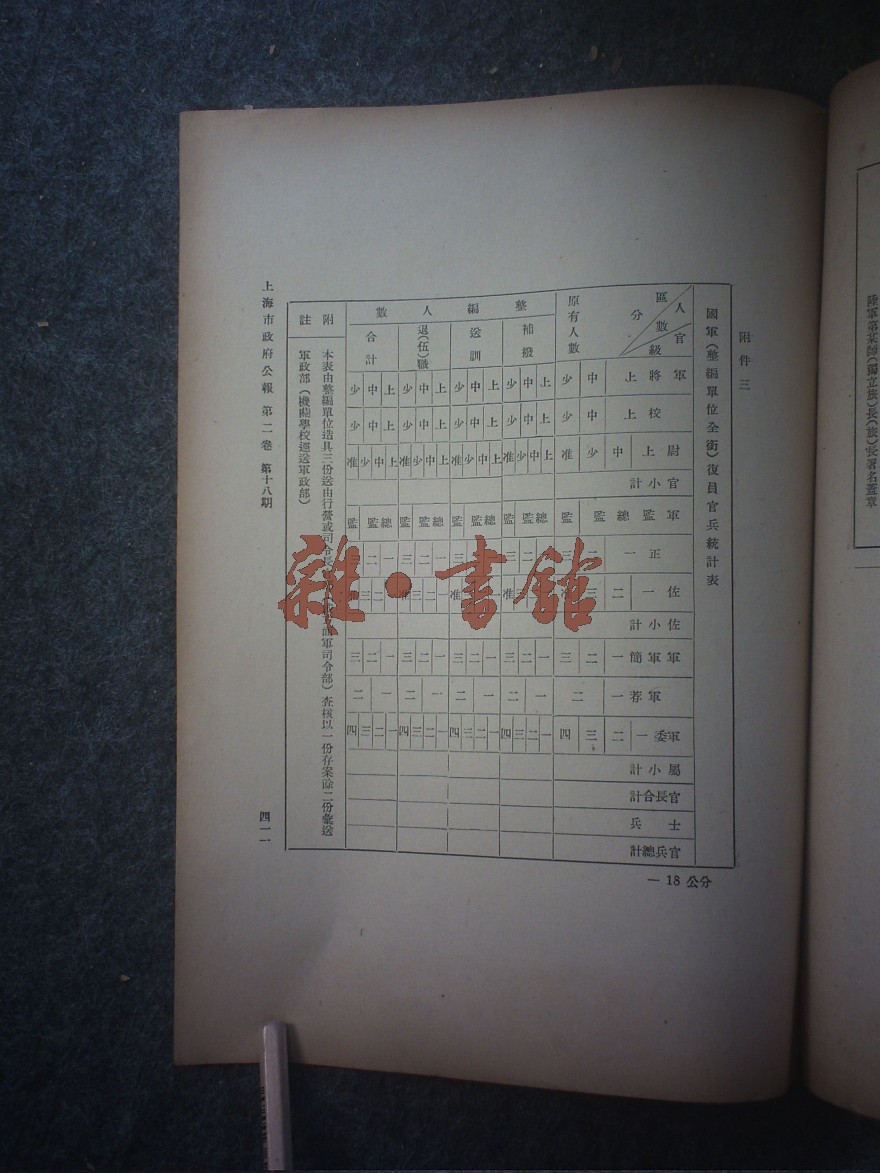 附件三
國軍（整編單位全銜）復員官兵統計表
區分 人數 官級
原有人數
整編人數
補撥
送訓
退（伍）職
合計
軍將 上 中 少 上 中 少 上 中 少 上 中 少 上 中 少
校 上 中 少 上 中 少 上 中 少 上 中 少 上 中 少
尉 上 中 少 准 上 中 少 准 上 中 少 准 上 中 少 准 上 中 少 准
官小計
軍監 總監 監 總監 監 總監 監 總監 監 總監 監
正 一 二 三 一 二 三 一 二 三 一 二
佐 一 二 三 准 一 二 三 准
佐小計
軍軍簡 一 二 三 一 二 三 一 二 三 一 二 三 一 二 三
軍荐 一 二 一 二 一 二 一 二 一 二
軍委 一 二 三 四 一 二 三 四 一 二 三 四 一 二 三 四 一 二 三 四
屬小計
官長合計
士兵
官兵總計
附註
本表由整編單位造具三份送由行營或司令長面軍司令部）查核以一份存案餘二份彙送
軍政部（機關學校逕送軍政部）
上海市政府公報 第二卷 第十八期
四一一
— 18 公分
陸軍第某師（獨立旅）長（旅）長署名蓋章
雜·書館